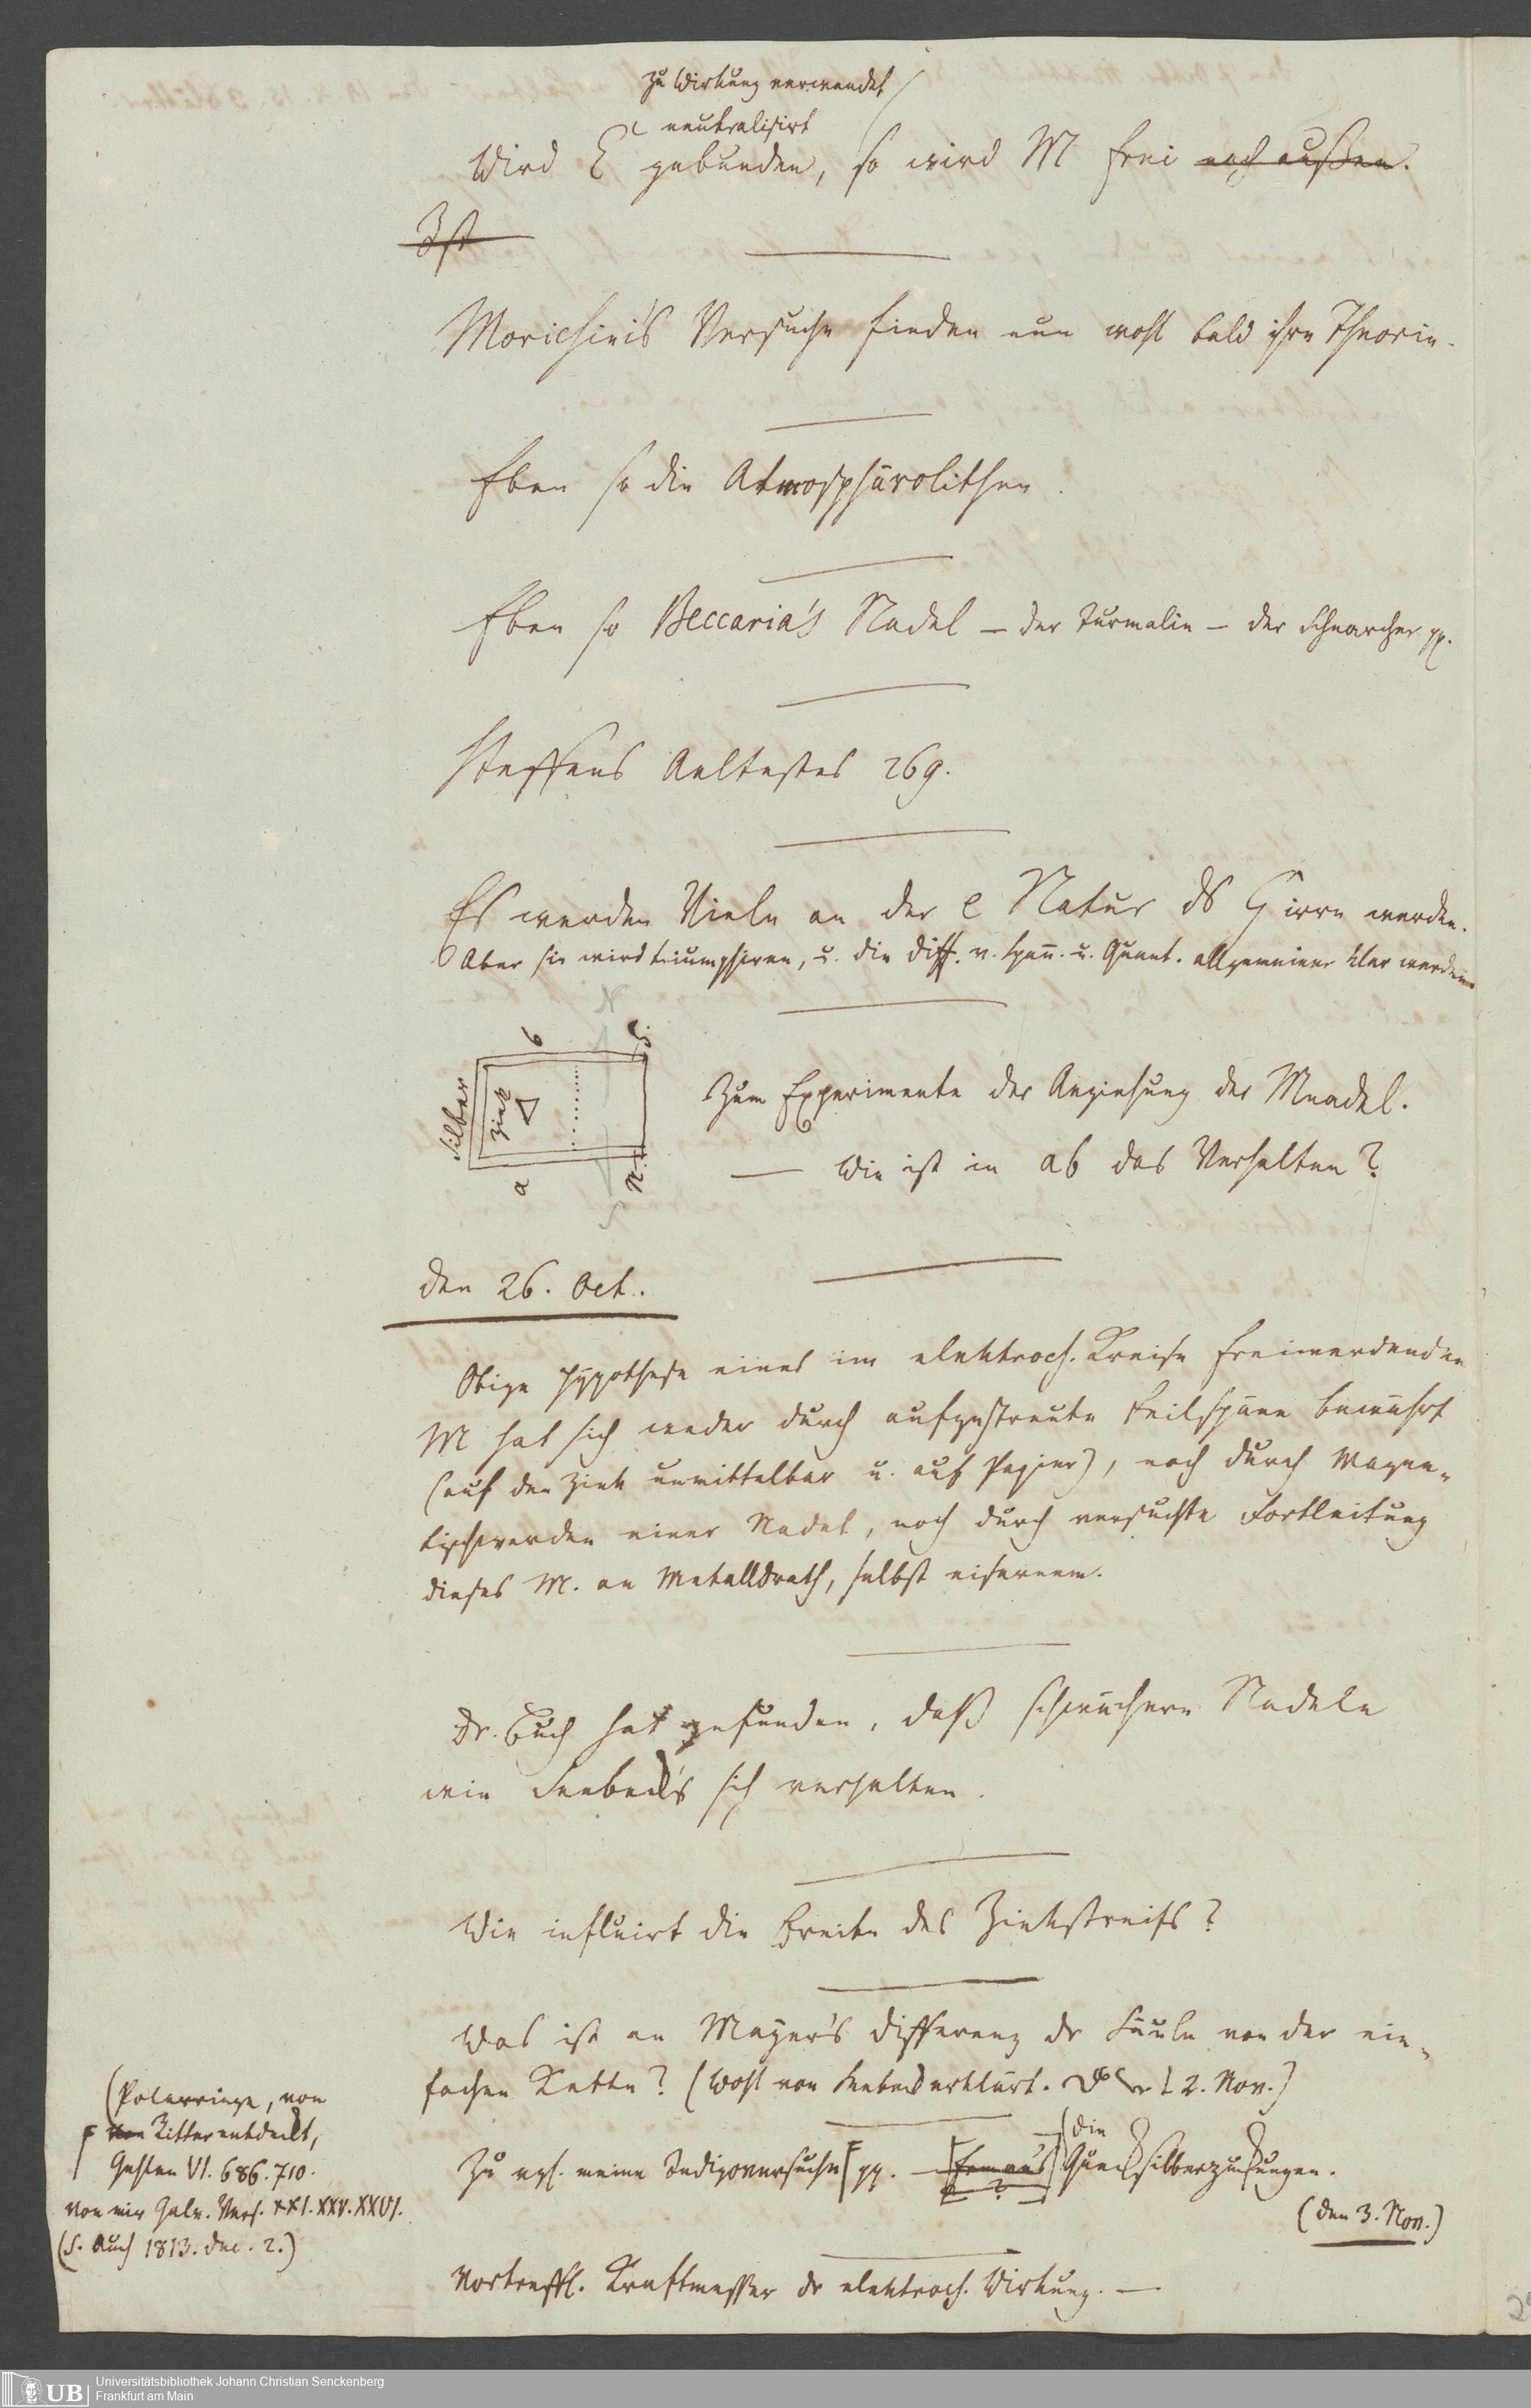 zu Wirkung verwendet
neutralisirt
Wird E gebunden, so wird M frei nach außen.
Ist
Morichini's Versuche finden nun wohl bald ihre Theorie.
Eben so die Atmosphärolithen.
Eben so Beccaria's Nadel – der Turmalin – der Schnarcher pp.
Steffens Aeltestes 269.
Es werden Viele an der e Natur ds G irre werden.
Aber sie wird triumphiren, u. die Diff. v. Spañ. u. Quant. allgemeiner klar werden.
N
b
S.
Silber
Zink
a
N.
S
Zum Experimente der Anziehung der Mnadel.
— Wie ist in ab das Verhalten?
den 26. Oct.
Obige Hypothese eines im elektroch. Kreise freiwerdenden
M hat sich weder durch aufgestreute Feilspäne bewährt
(auf den Zink unmittelbar u. auf Papier), noch durch Magne-
tischwerden einer Nadel, noch durch versuchte Fortleitung
dieses M. an Metalldrath, selbst eisernem.
Dr. Buch hat gefunden, daß schwächere Nadeln
wie Seebeck's sich verhalten.
Wie influirt die Breite des Zinkstreifs?
Was ist an Mayer's Differenz dr Säule von der ein-
fachen Kette? (Wohl von Seebeck erklärt. 2. Nov.)
Zu vgl. meine Indigoversuche pp. — Erman's (die Quecksilberzuckungen.
?
(den 3. Nov.)
Vortreffl. Kraftmesser dr elektroch. Wirkung. —
(Polarringe, von
von Ritter entdeckt,
Gehlen VI. 686. 710.
von mir Galv. Vers. XXI. XXV. XXVI.
(S. Auch 1813. Dec. 2.)
UB
Universitätsbibliothek Johann Christian Senckenberg
Frankfurt am Main